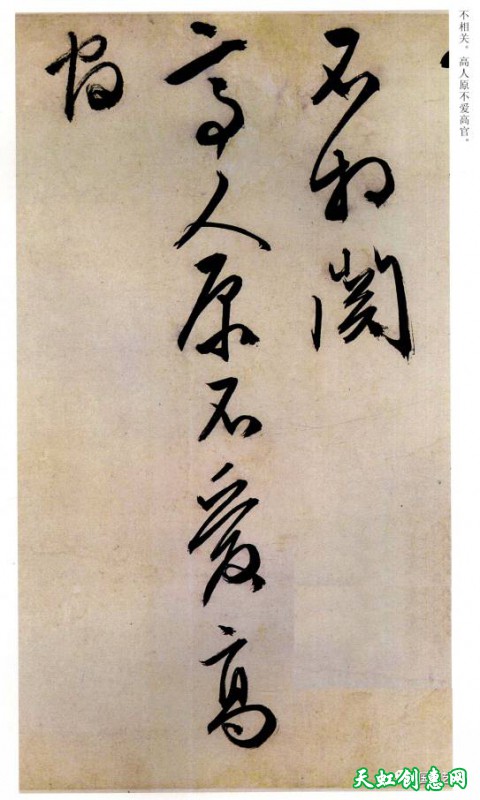 不相关。高人原不爱高官。
不相關
高人原不爱高
官
天虹创惠网